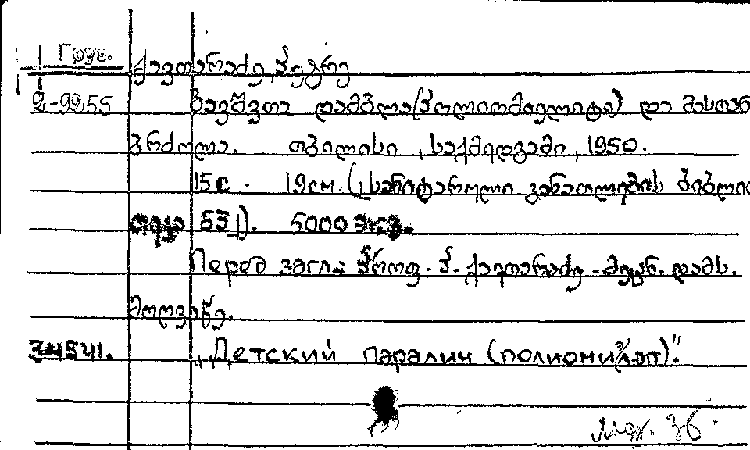 Груз. ქავთარაძე, პეტრე
2-9955 ბავშვთა დამბლა (პოლიომიელიტი) და მასთან
ბრძოლა. თბილისი, საქმედგამი, 1950.
15c. 19см. (სანიტარული განათლების ბიბლიო
თეკა 53). 5000 ეგზ.
Перед загл: პროფ. პ. ქავთარაძე - მეცნ. დამს.
მოღვაწე.
34541. „Детский паралич (полиомиелит)".